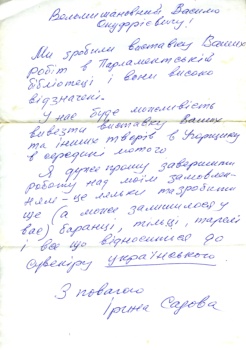 Вельмишановний Василю
Онуфрієвичу!
Ми зробили виставку Ваших
робіт в Парламентській
бібліотеці і вони високо
відзначені.
У нас буде можливість
вивезти виставку Ваших
та інших творів в
в середині лютого
Я дуже прошу завершити
роботу над моїм замовлен-
ням – це ляльки та зробити
ще (а може залишилося у
вас) баранці, тільці, тарелі
і все що відноситься до
сувеніру українського.
З повагою
Ірина Садова